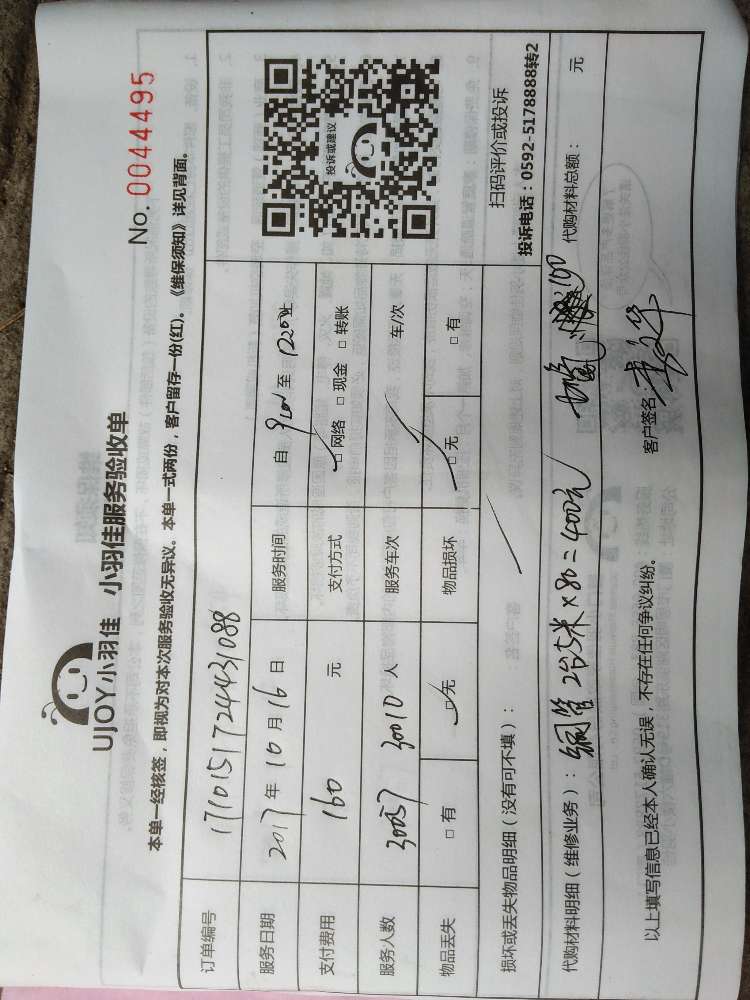 UJOY小羽佳 小羽佳服务验收单
No. 0044495
本单一经核签，即视为对本次服务验收无异议。本单一式两份，客户留存一份(红)。《维保须知》详见背面。
订单编号 17101517244431088
服务日期 2017年10月16日 服务时间 自 9:00 至 12:00 止
支付费用 160 元 支付方式 ☑网络 □现金 □转账
服务人数 30057 30010 人 服务车次 车/次
物品丢失 □有 ☑无 物品损坏 ☑无 □有
投诉或建议
扫码评价或投诉
投诉电话：0592-5178888转2
损坏或丢失物品明细（没有可不填）：
代购材料明细（维修业务）：铜管 2台5米×80=400元 100 代购材料总额： 元
以上填写信息已经本人确认无误，不存在任何争议纠纷。 客户签名：